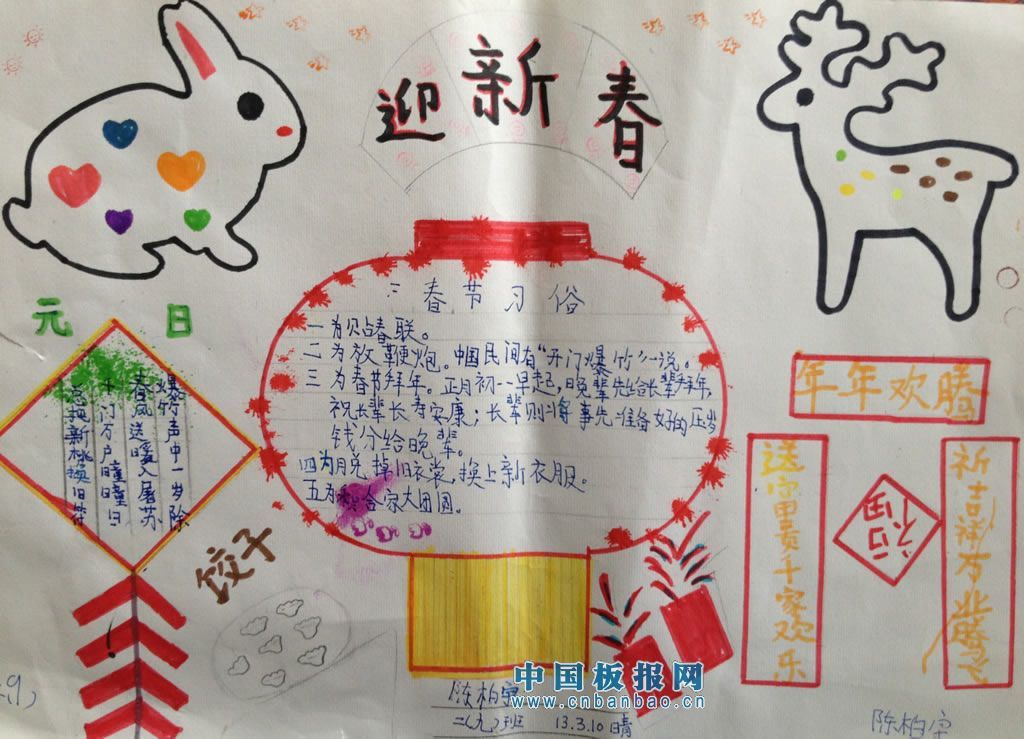 迎新春
元日
爆竹声中一岁除
春风送暖入屠苏
千门万户瞳瞳日
总把新桃换旧符
春节习俗
一为贝占春联。
二为放鞭炮。中国民间有“开门爆竹”一说。
三为春节拜年。正月初一早起,晚辈先给长辈拜年,
祝长辈长寿安康;长辈则将事先准备好的压岁
钱分给晚辈。
四为脱掉旧衣裳,换上新衣服。
五为合家大团圆。
饺子
年年欢腾
送富贵千家欢乐
福
祈吉祥万业腾飞
陈柏宇
二(九)班 13.3.10晴
中国板报网
www.cnbanbao.cn
陈柏宇